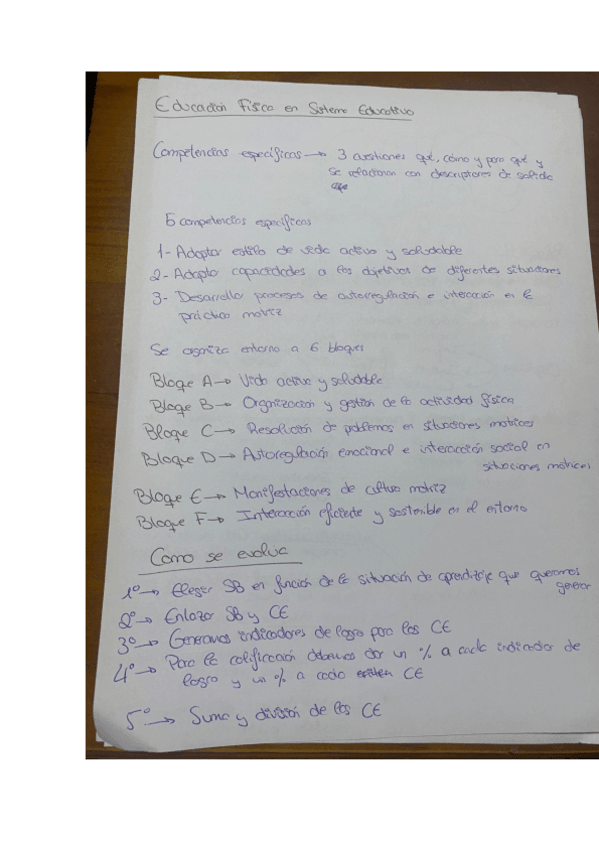 Educación Física en Sistema Educativo
Competencias específicas → 3 cuestiones qué, cómo y para qué y
se relacionan con descriptores de salida
5 competencias específicas
1- Adoptar estilo de vida activo y saludable
2- Adaptar capacidades a los objetivos de diferentes situaciones
3- Desarrollar procesos de autorregulación e interacción en la
práctica motriz
Se organiza entorno a 6 bloques
Bloque A → Vida activa y saludable
Bloque B → Organización y gestión de la actividad física
Bloque C → Resolución de problemas en situaciones motrices
Bloque D → Autorregulación emocional e interacción social en
situaciones motrices
Bloque E → Manifestaciones de cultura motriz
Bloque F → Interacción eficiente y sostenible en el entorno
Como se evalua
1º → Elegir SB en función de la situación de aprendizaje que queramos
generar
2º → Enlazar SB y CE
3º → Generamos indicadores de logro para los CE
4º → Para la calificación debemos dar un % a cada indicador de
logro y un % a cada CE
5º → Suma y división de los CE